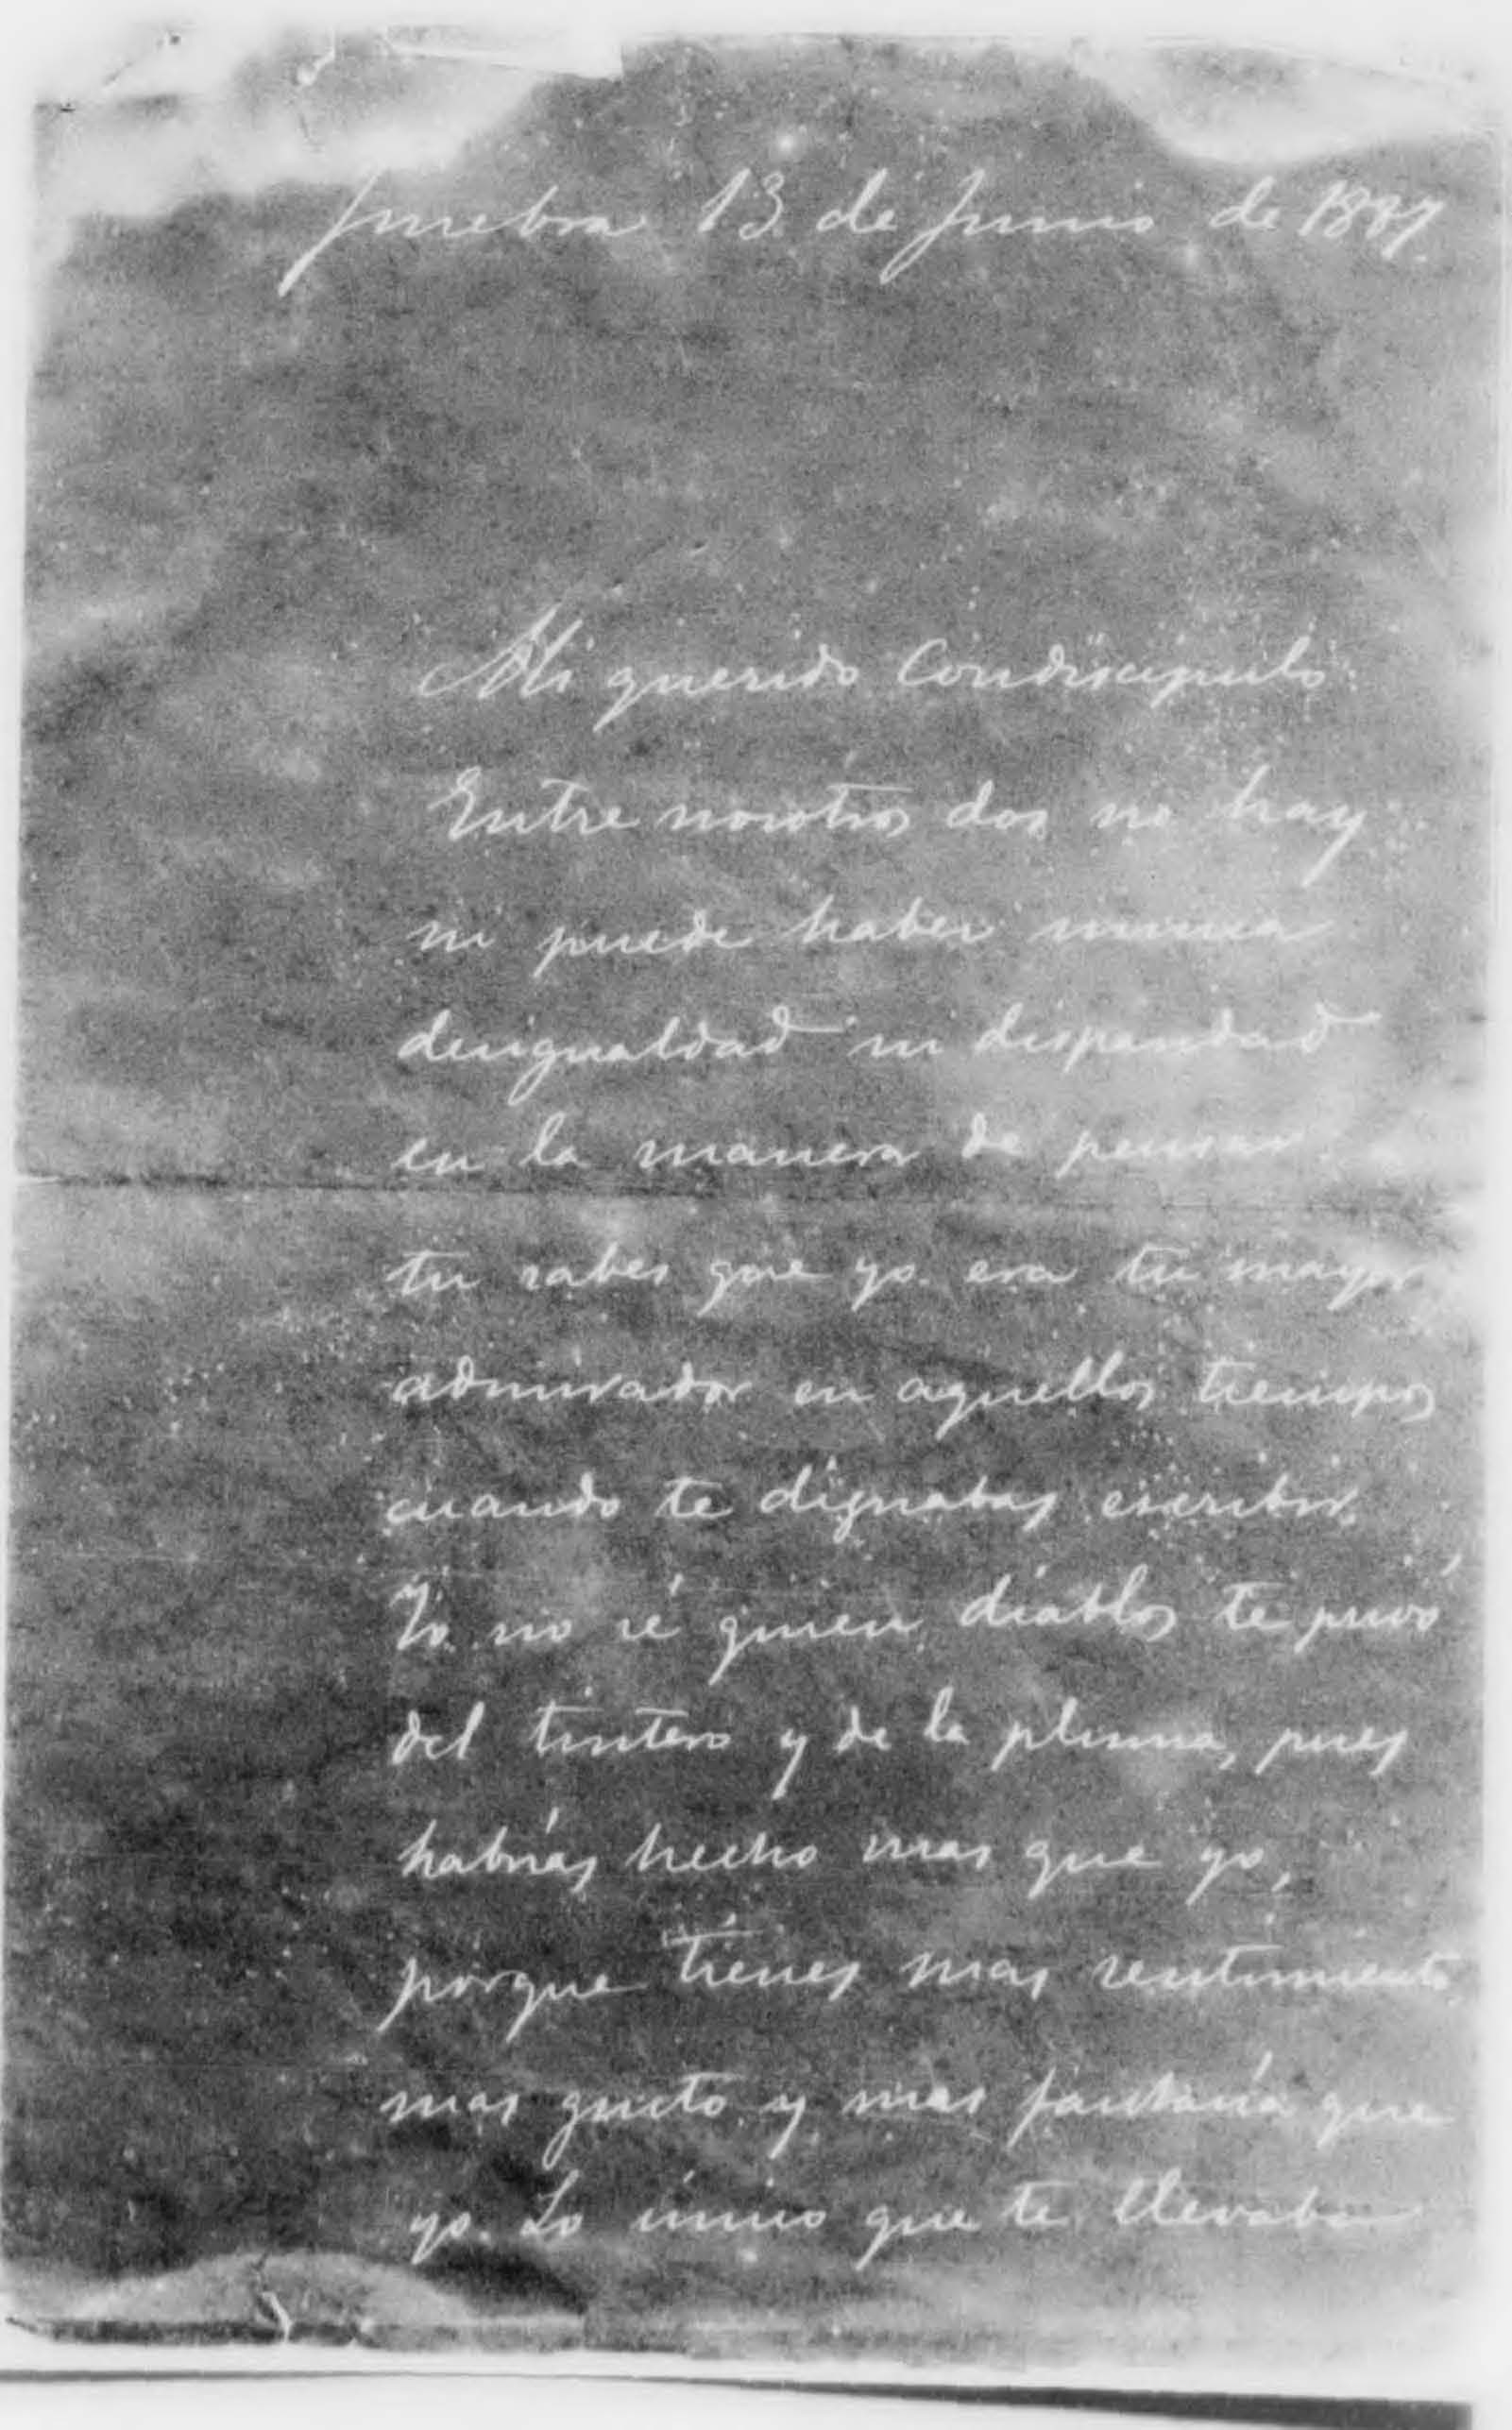 Jinebra 13 de Junio de 1887.
Mi querido Condiscipulo:
Entre nosotros dos no hay
ni puede haber nunca
desigualdad ni disparidad
en la manera de pensar.
tu sabes que yo era tu mayor
admirador en aquellos tiempos
cuando te dignabas escribir.
Yo no sé quien diablos te privó
del tintero y de la pluma, pues
habrías hecho mas que yo,
porque tienes mas sentimiento
mas gusto y mas fantasía que
yo. Lo único que te llevaba